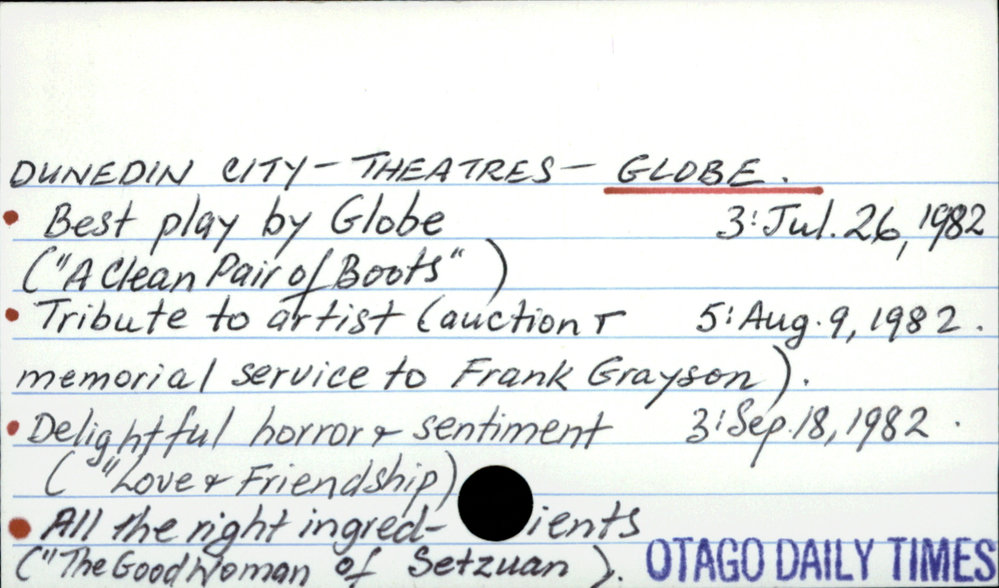 DUNEDIN CITY - THEATRES - GLOBE.
• Best play by Globe 3: Jul. 26, 1982
("A Clean Pair of Boots")
• Tribute to artist (auction + 5: Aug. 9, 1982.
memorial service to Frank Grayson).
• Delightful horror + sentiment 3: Sep. 18, 1982.
("Love + Friendship)
• All the right ingred-ients
("The Good Woman of Setzuan ). OTAGO DAILY TIMES